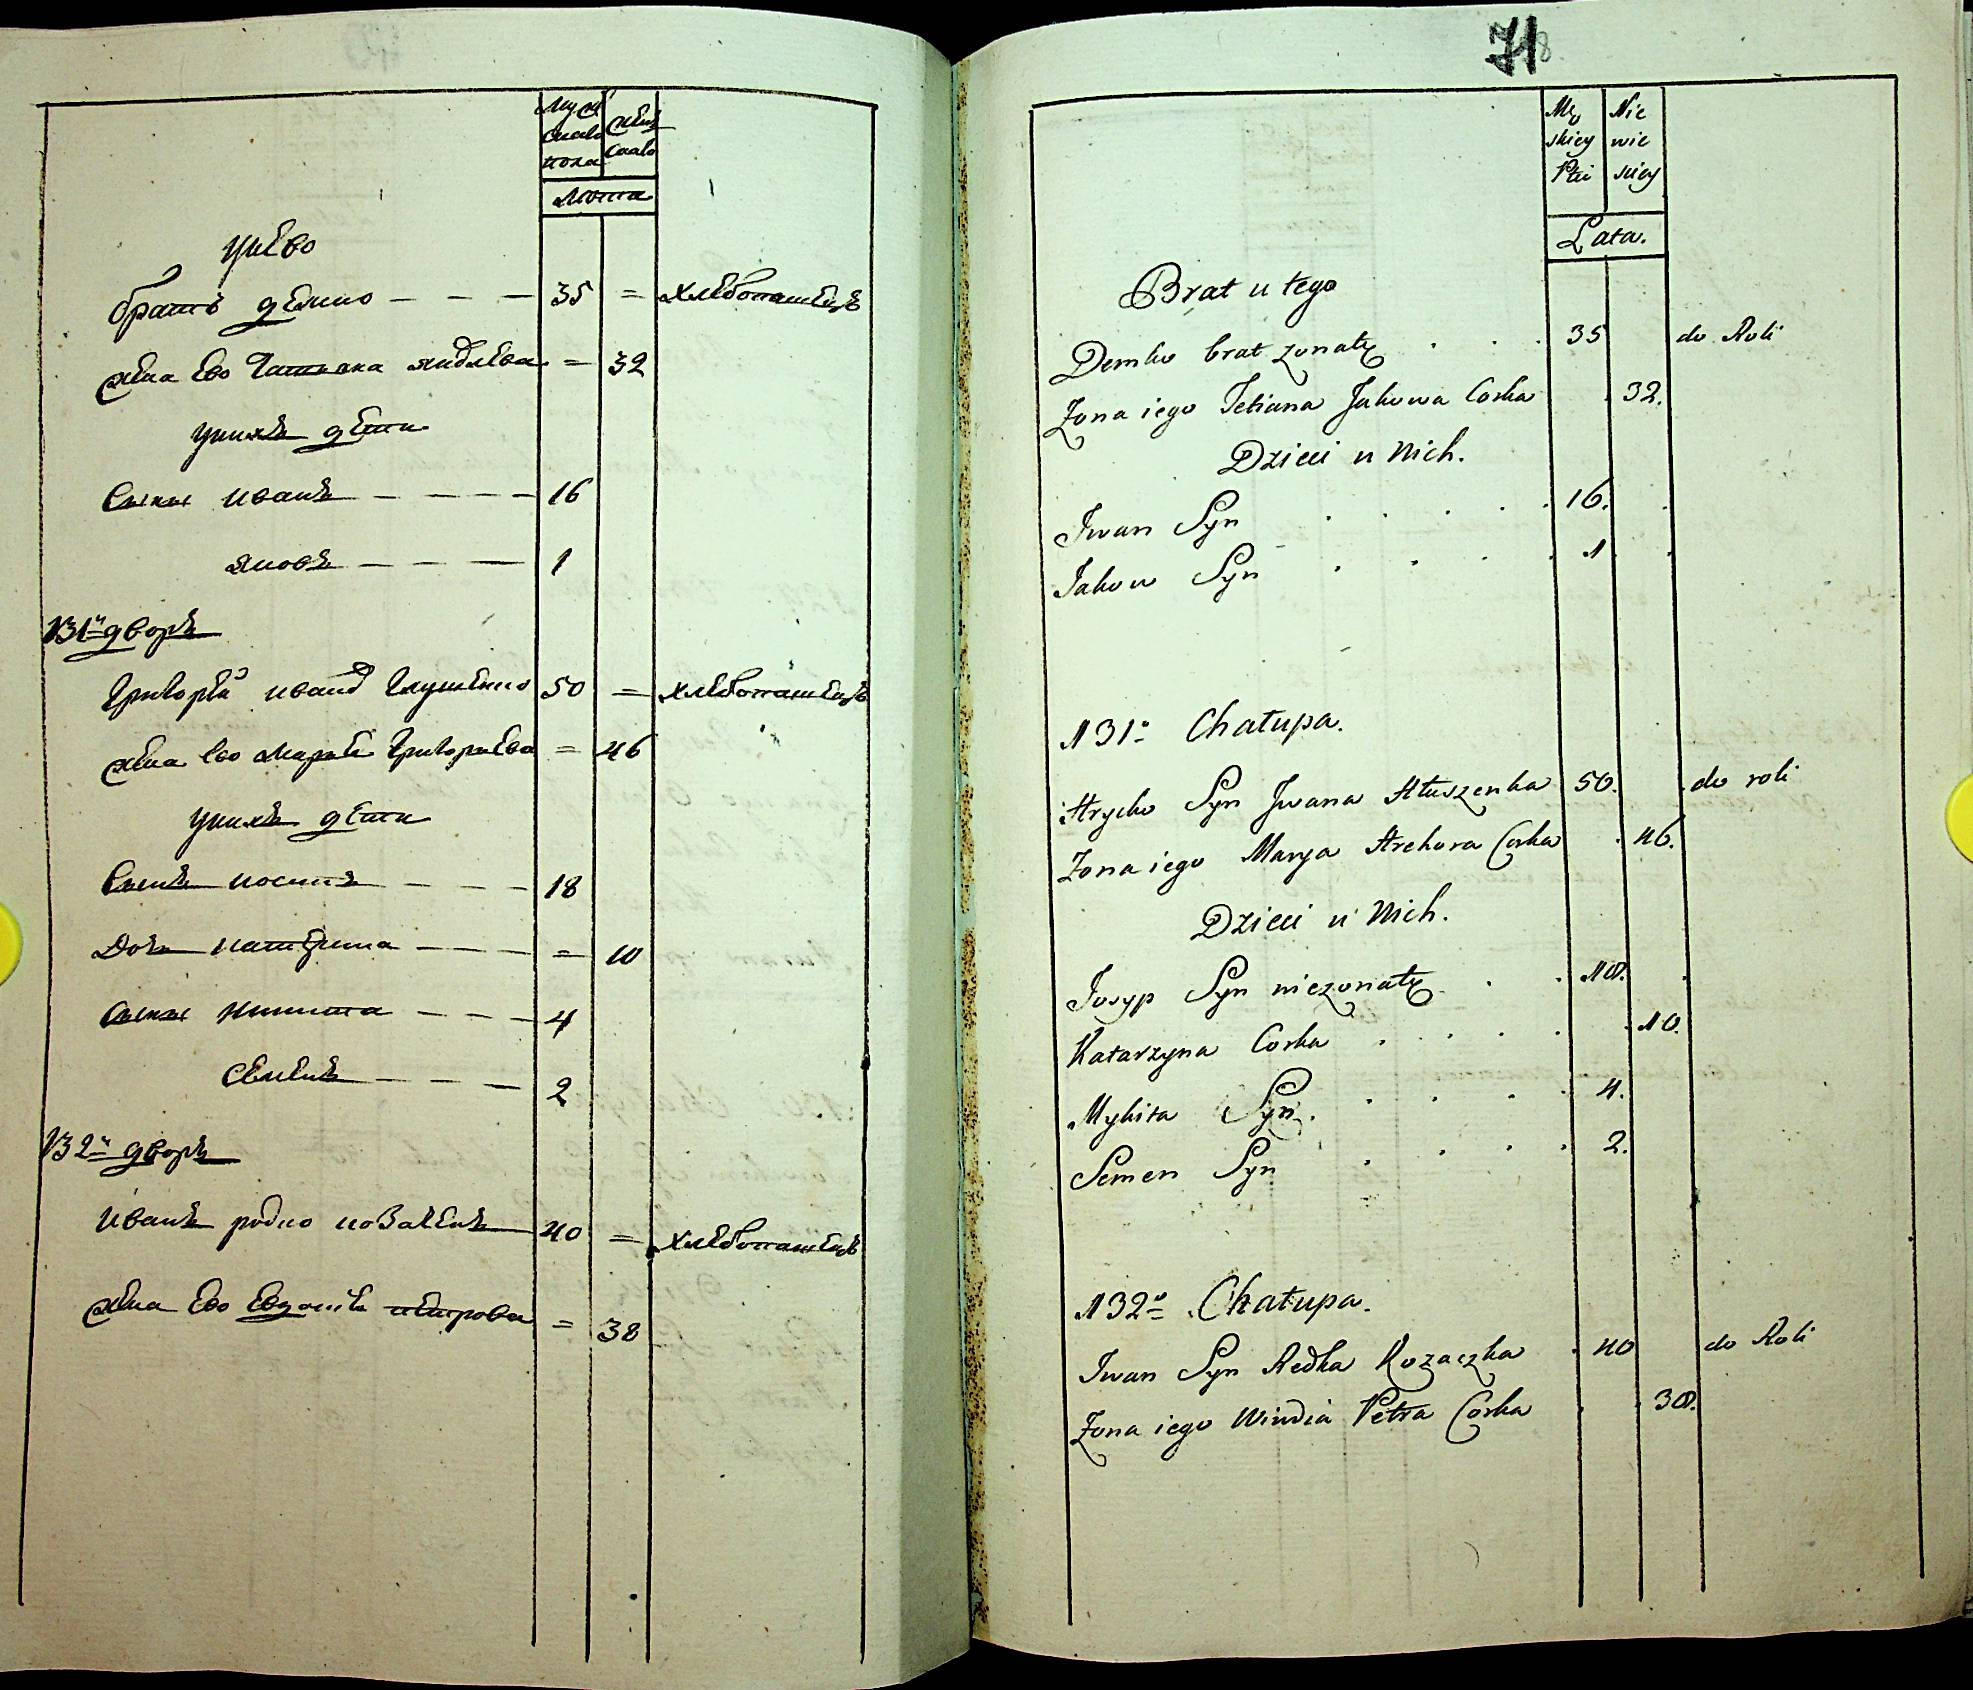 Муж
скаго
пола
жен
скаго
Лѣта
у нево
братъ демко — — — 35 = хлебопашецъ
жена ево Татьяна яковлева = 32
у нихъ дети
Сыны иванъ — — — — 16
яковъ — — — 1
131й дворъ
Григорей иванов Глушенко 50 = хлебопашецъ
жена ево марья Григорьева = 46
у нихъ дети
Сынъ иосипъ — — — 18
Дочь катерина — — — = 10
сыны никита — — — 4
Семенъ — — — 2
132й дворъ
иванъ редко козаченко 40 = хлебопашецъ
жена ево Евдокия петрова = 38
71
Mę
skiey
Płci
Nie
wie
sciey
Lata.
Brat u tego
Demko brat zonaty . . . 35 do Roli
Zona iego Tetiana Jakowa Corka 32.
Dzieci u Nich.
Iwan Syn . . . . . 16.
Jakow Syn . . . . 1
131° Chałupa.
Hrycko Syn Iwana Hłuszenka 50. do roli
Zona iego Marya Hrehora Corka 46.
Dzieci u Nich.
Josyp Syn niezonaty . . 18.
Katarzyna Corka . . . . 10.
Mykita Syn . . . . 4.
Semen Syn . . . . 2.
132° Chałupa.
Iwan Syn Redka Kozaczka . 40 do Roli
Zona iego Petra Córka . . 38.